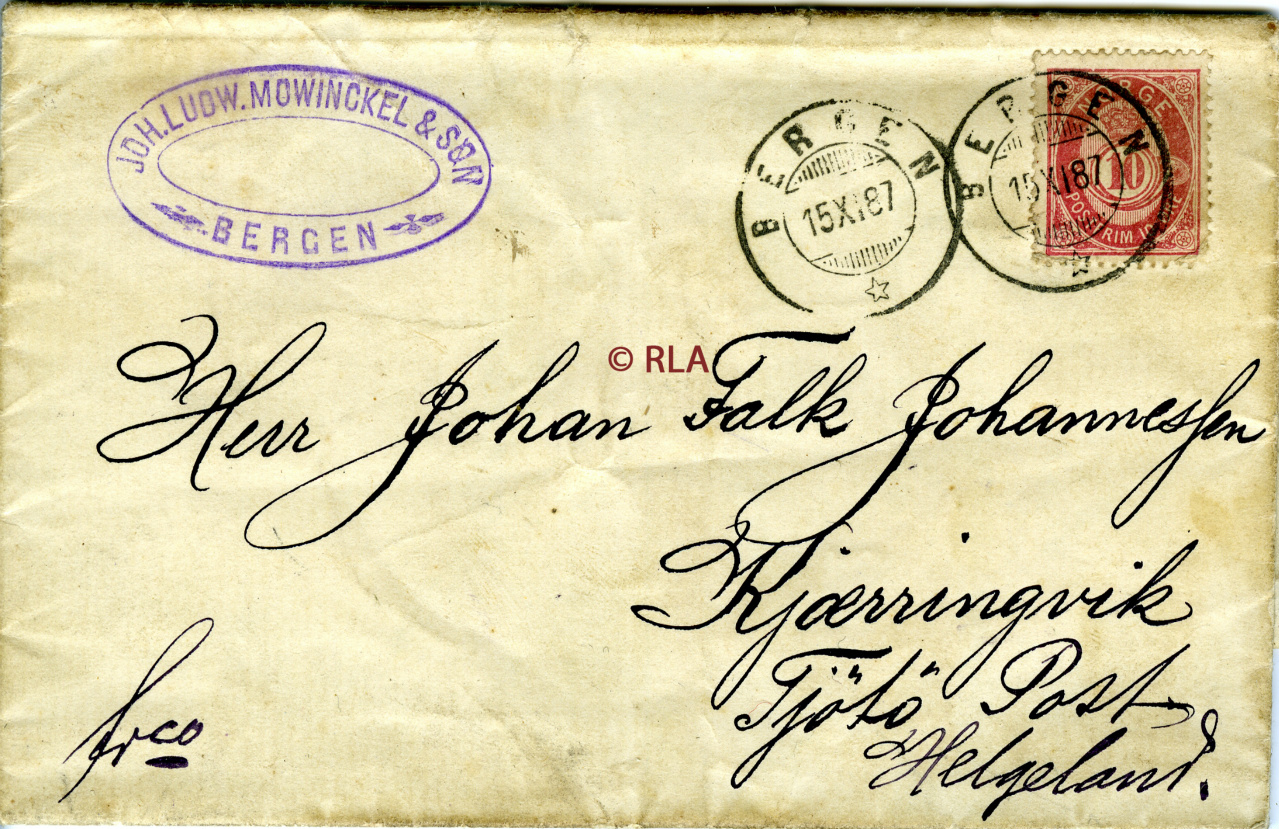 JOH. LUDW. MOWINCKEL & SØN
BERGEN
BERGEN
15 XI 87
BERGEN
15 XI 87
NORGE
10
© RLA
Herr Johan Falk Johannessen
Kjærringvik
Tjötö Post
Helgeland.
frco